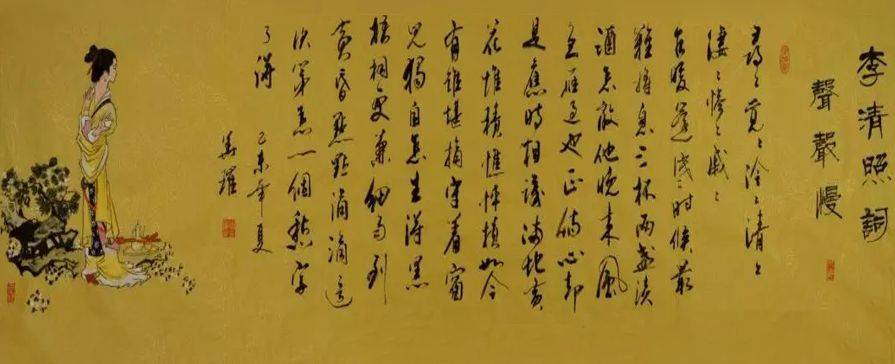 李清照詞
聲聲慢
尋〻覓〻冷〻清〻
淒〻慘〻戚〻
乍暖還時候最
難將息三杯兩盞淡
酒怎敵他晚來風
急雁過也正傷心却
是舊時相識滿地黃
花堆積憔悴損如今
有誰堪摘守着窗
兒獨自怎生得黑
梧桐更兼細雨到
黃昏點點滴滴這
次第怎一個愁字
了得 乙未年夏